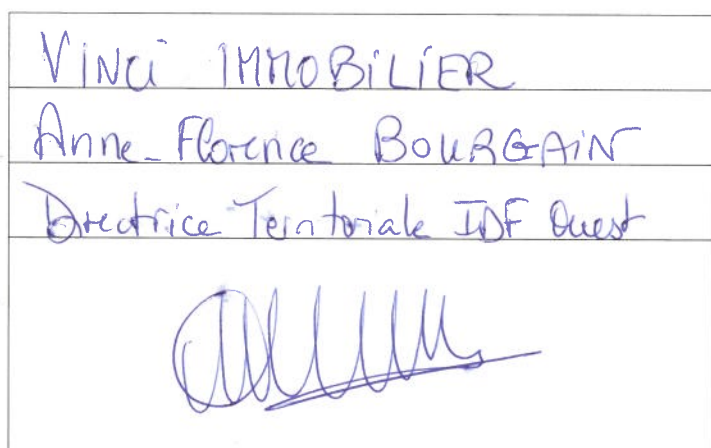 VINCI IMMOBILIER
Anne-Florence BOURGAIN
Directrice Territoriale IDF Ouest